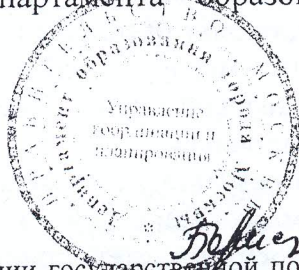 партамента образо
ПРАВИТЕЛЬСТВО МОСКВЫ
Департамент образования города Москвы
Управление
координации и
планирования
ии государственной по